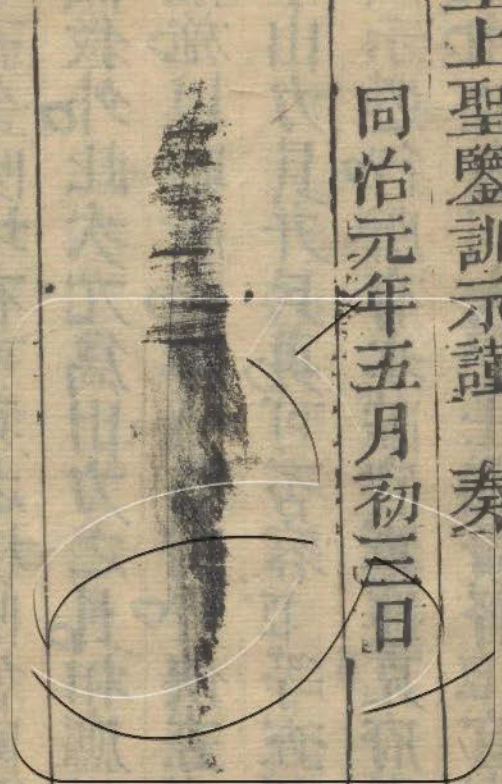 上聖鑒訓示謹 奏
同治元年五月初三日